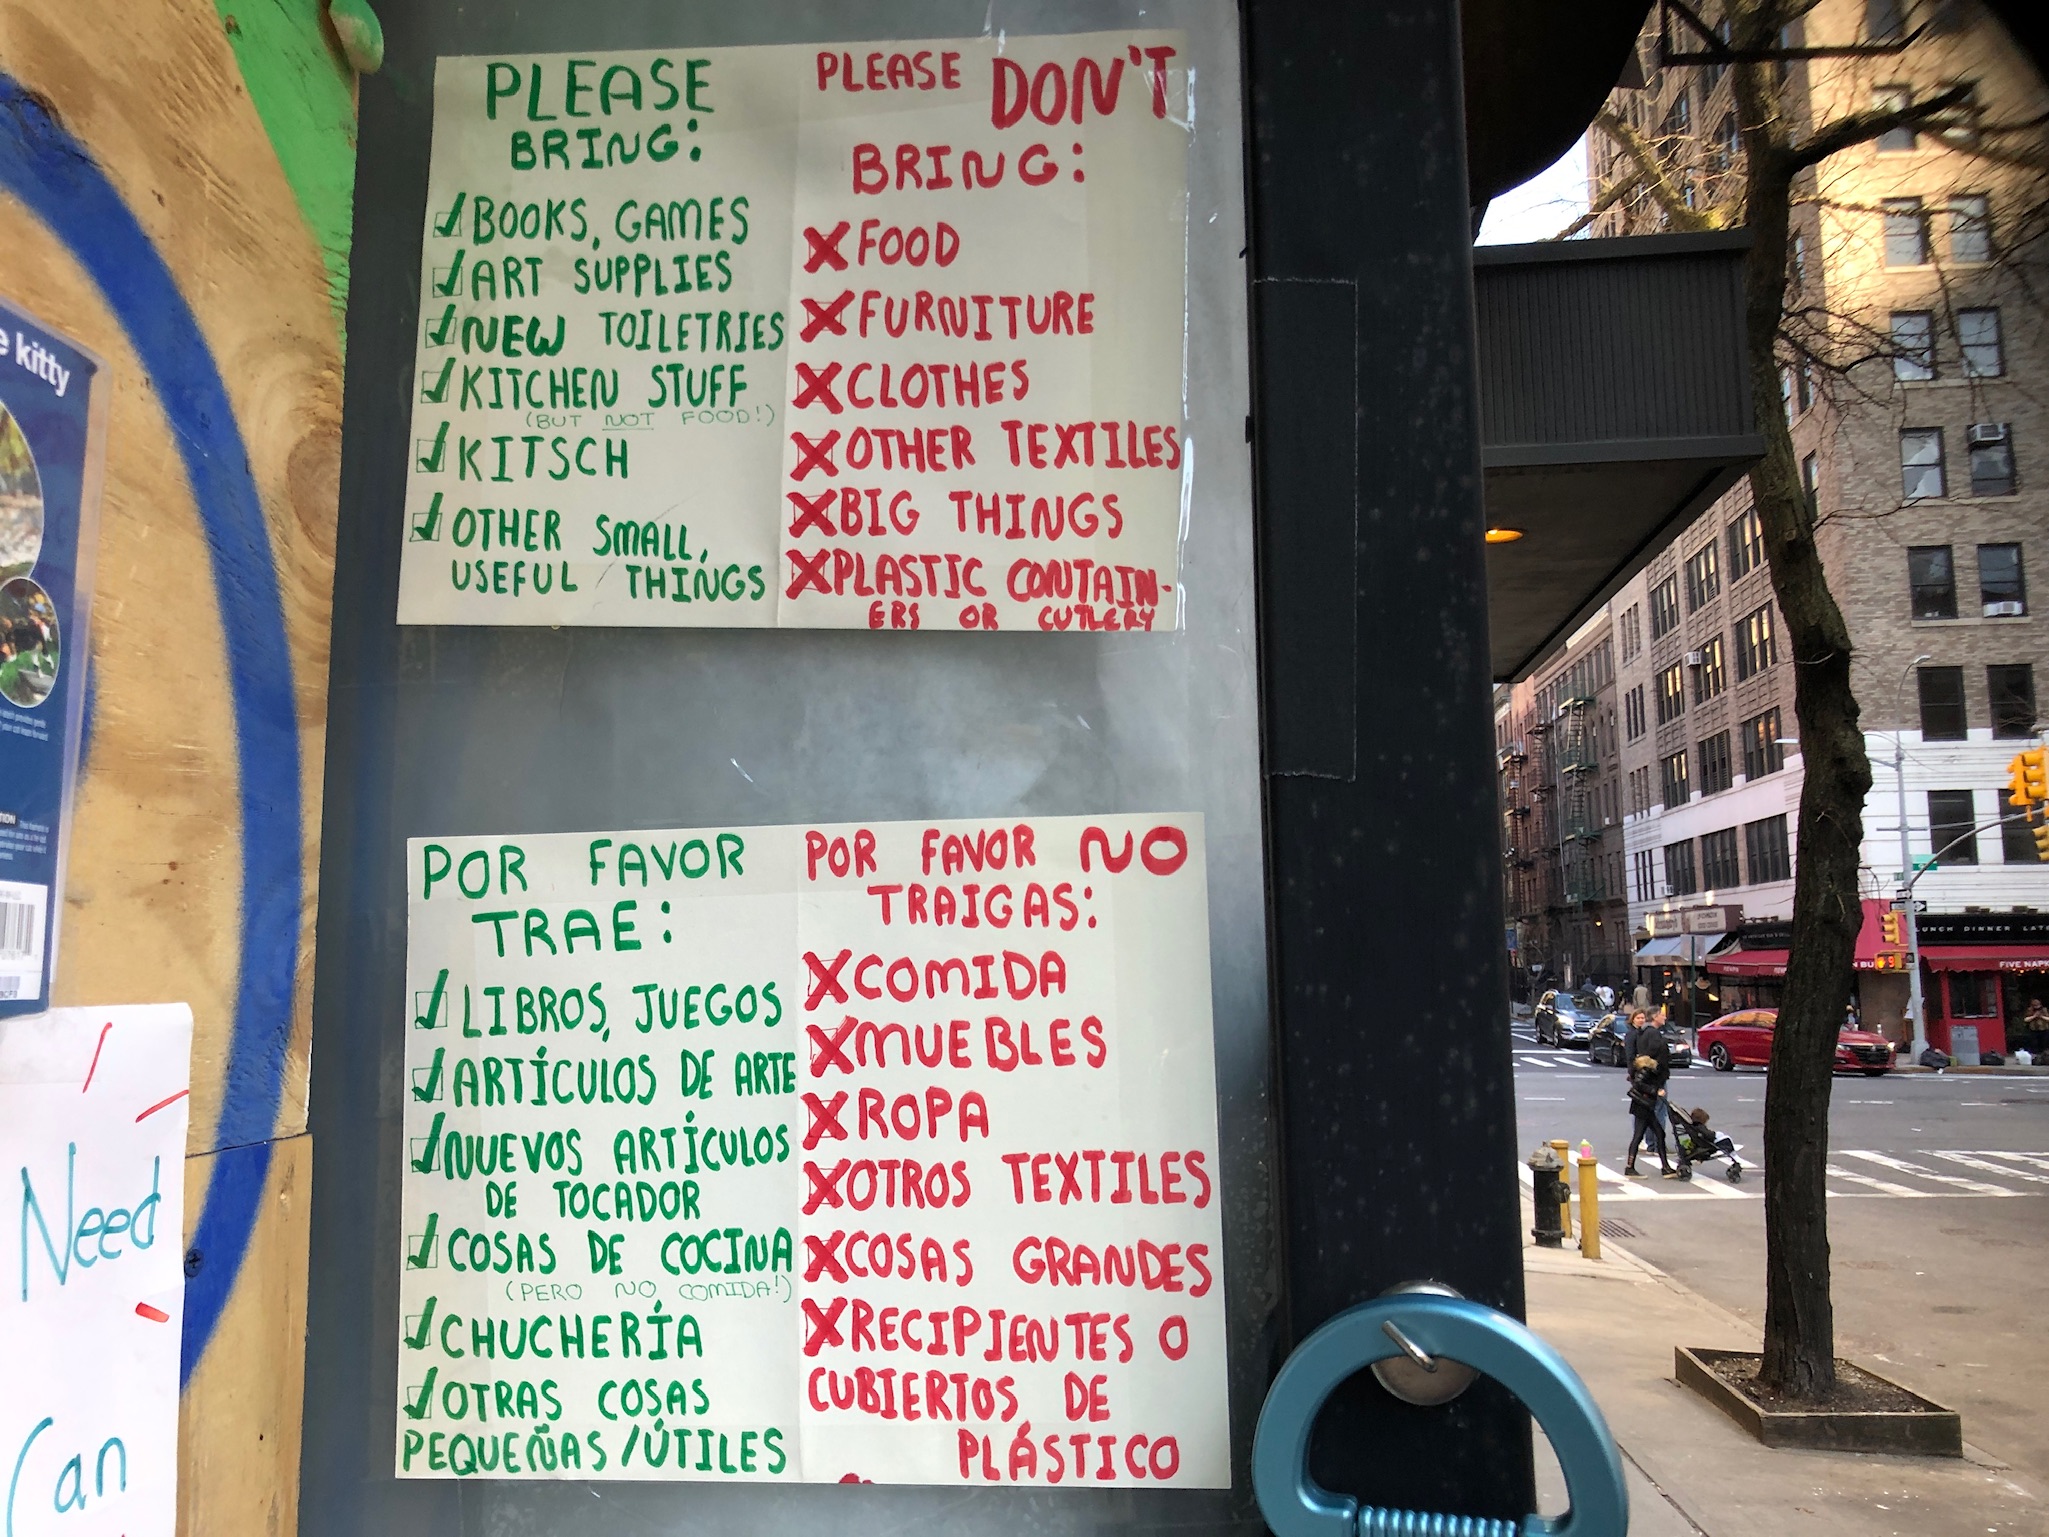 PLEASE
BRING:
BOOKS, GAMES
ART SUPPLIES
NEW TOILETRIES
KITCHEN STUFF
(BUT NOT FOOD!)
KITSCH
OTHER SMALL,
USEFUL THINGS
PLEASE DON'T
BRING:
FOOD
FURNITURE
CLOTHES
OTHER TEXTILES
BIG THINGS
PLASTIC CONTAIN-
ERS OR CUTLERY
POR FAVOR
TRAE:
LIBROS, JUEGOS
ARTÍCULOS DE ARTE
NUEVOS ARTÍCULOS
DE TOCADOR
COSAS DE COCINA
(PERO NO COMIDA!)
CHUCHERÍA
OTRAS COSAS
PEQUEÑAS /ÚTILES
POR FAVOR NO
TRAIGAS:
COMIDA
MUEBLES
ROPA
OTROS TEXTILES
COSAS GRANDES
RECIPIENTES O
CUBIERTOS DE
PLÁSTICO
kitty
Need
Can
LUNCH DINNER
FIVE